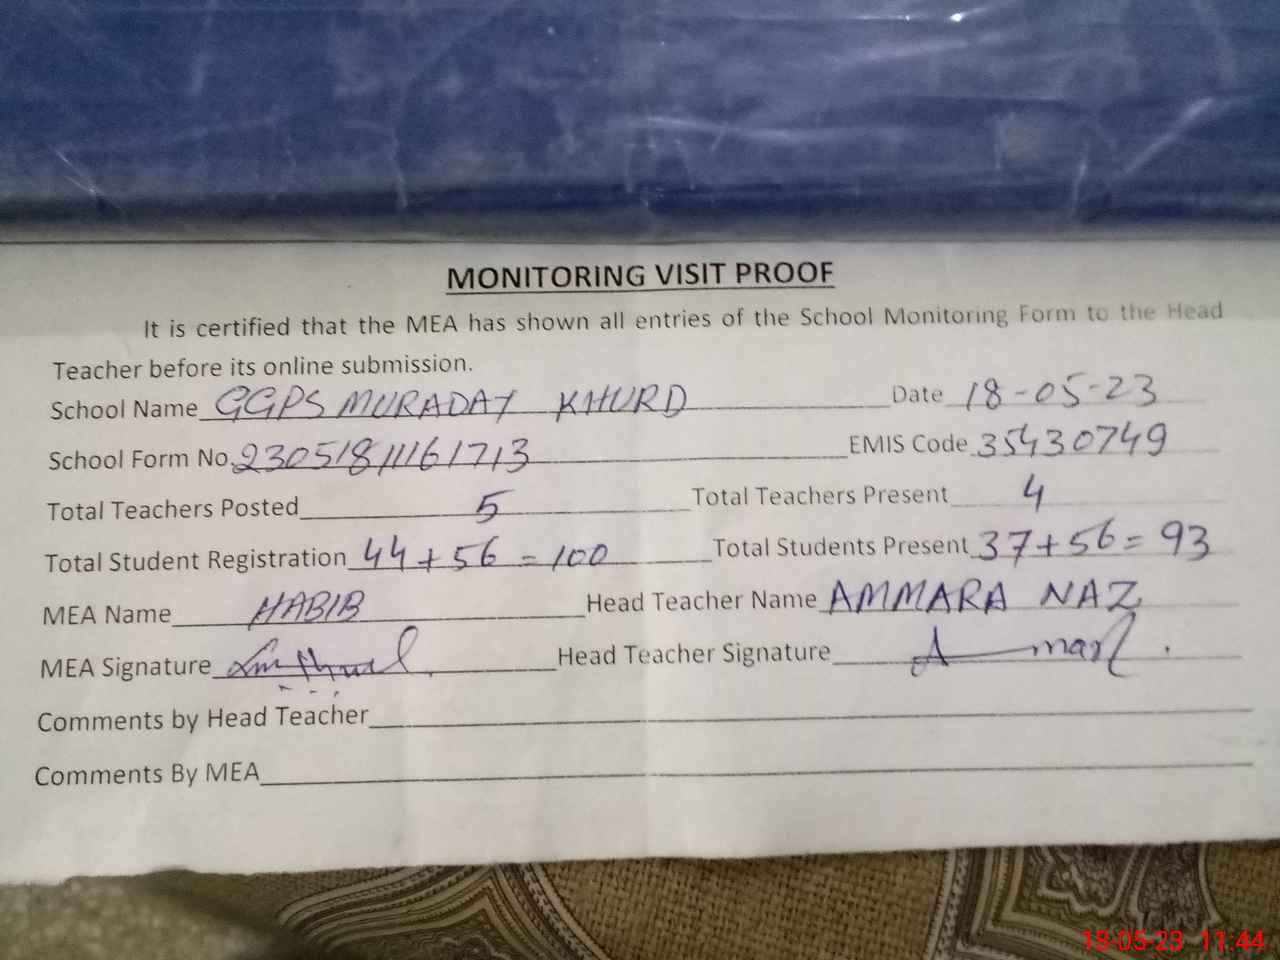 MONITORING VISIT PROOF
It is certified that the MEA has shown all entries of the School Monitoring Form to the Head
Teacher before its online submission.
School Name GGPS MURADAY KHURD Date 18-05-23
School Form No. 23051811161713 EMIS Code 35430749
Total Teachers Posted 5 Total Teachers Present 4
Total Student Registration 44+56=100 Total Students Present 37+56=93
MEA Name HABIB Head Teacher Name AMMARA NAZ
MEA Signature Head Teacher Signature
Comments by Head Teacher
Comments By MEA
18-05-23 11:44